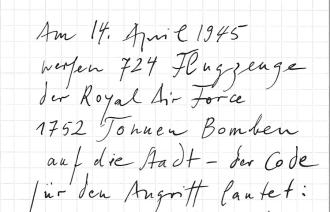 Am 14. April 1945
werfen 724 Flugzeuge
der Royal Air Force
1752 Tonnen Bomben
auf die Stadt – der Code
für den Angriff lautet: